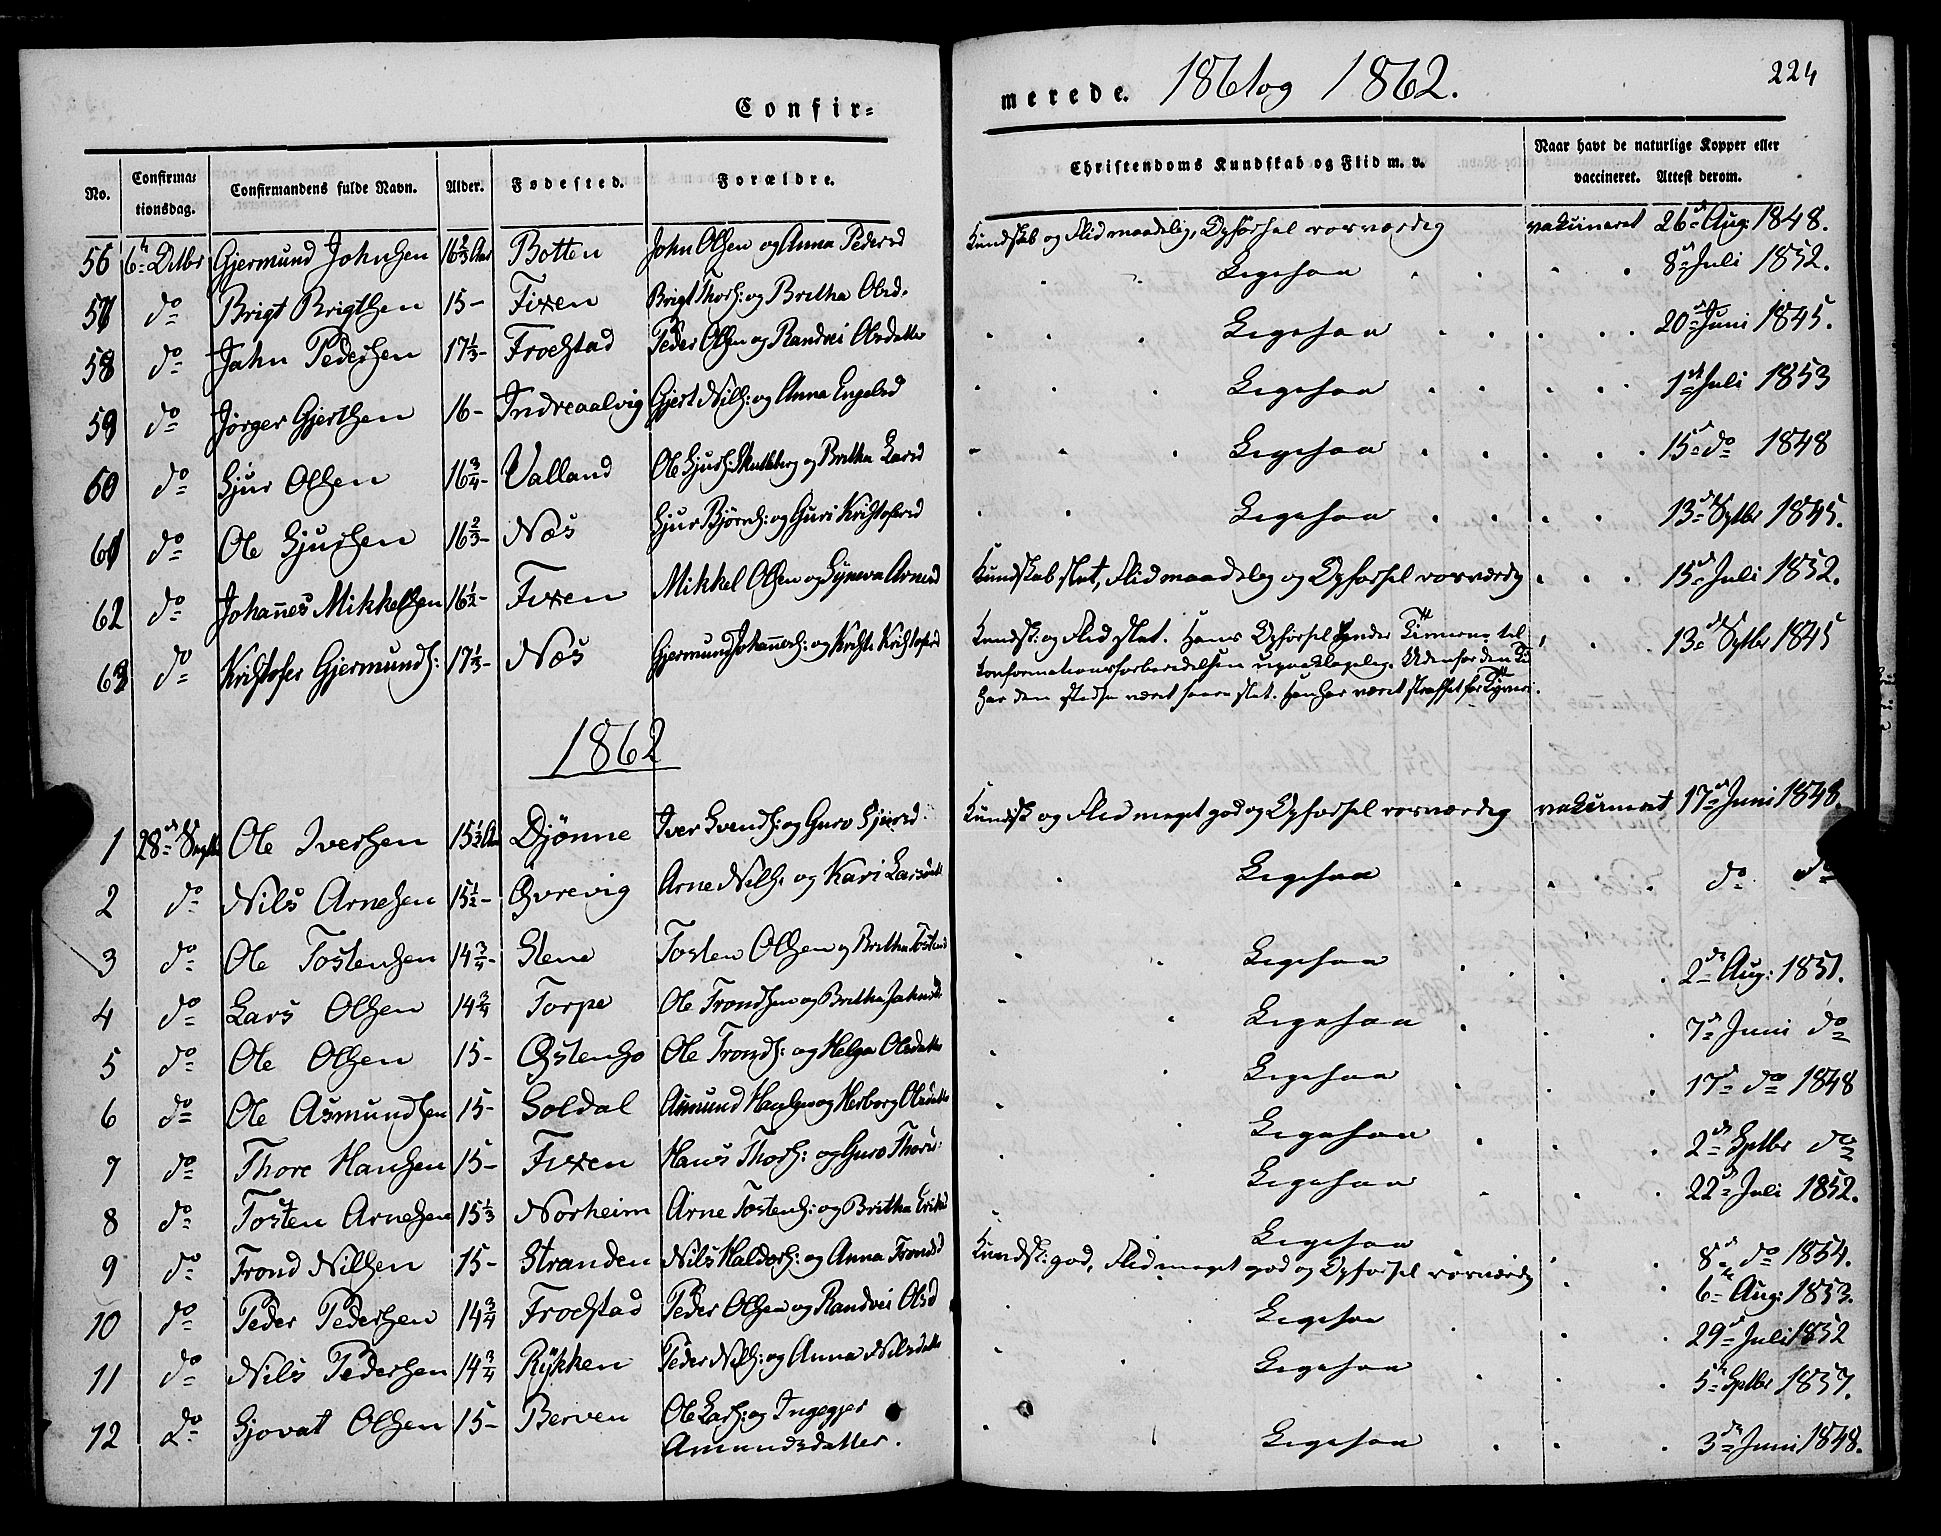 Confir-
merede. 1861 og 1862.
224
No. Confirmationsdag. Confirmandens fulde Navn. Alder. Fødested. Forældre. Christendoms Kundskab og Flid m. v. Naar havt de naturlige Kopper eller vaccineret. Attest derom.
56 6te Gjermund Johnsen 16 2/3 Aar Botten John Olsen og Anna Pedersd Kundskab og Flid maadelig, Opførsel rosværdig vakcineret 26de Aug: 1848.
57 do Brigt Brigtsen 15- Fixen Brigt Thors: og Britha Olsd. Ligesaa 8de Juli 1852.
58 do John Pedersen 17 1/3- Froestad Peder Olsen og Randvei Olsdatter Ligesaa 20de Juni 1845.
59 do Jørger Gjertsen 16- Indreaalvig Gjert Nils: og Anna Engelsd Ligesaa 1ste Juli 1853
60 do Sjur Olsen 16 3/4- Valland Ole Sjurs: og Britha Larsd Ligesaa 15de do 1848
61 do Ole Sjursen 16 2/3- Næs Sjur Bjørns: og Guri Kristofersd Ligesaa 13de Septbr 1845.
62 do Johannes Mikkelsen 16 1/2- Fixen Mikkel Olsen og Synneva Arnesd Kundskab slet, Flid maadelig og Opførsel rosværdig 15de Juli 1852.
63 do Kristofer Gjermunds: 17 1/3- Næs Gjermund Johannes: og Kristi Kristofersd Kundsk: og Flid slet. Hans Opførsel under Timerne til 13de Septbr 1845
Konfirmationsforberedelsen upaaklagelig. Udenfor den Tid
har den stedse været saare slet. Han har været straffet for Tyveri.
1862
1 28de Septbr Ole Iversen 15 1/2 Aar Djønne Iver Svends: og Guro Sjursd: Kundsk og Flid meget god og Opførsel rosværdig vakcineret 17de Juni 1848.
2 do Nils Arnesen 15 1/2- Øvrevig Arne Nils: og Kari Larsdatt Ligesaa do do
3 do Ole Tostensen 14 3/4- Stene Tosten Olsen og Britha Tostensd Ligesaa 2de Aug: 1851.
4 do Lars Olsen 14 3/4 Torpe Ole Trondsen og Britha Johnsd Ligesaa 7de Juni do
5 do Ole Olsen 15- Østensø Ole Tronds: og Helga Olsdatter Ligesaa 17de do 1848
6 do Ole Asmundsen 15- Soldal Asmund Hansen og Herborg Olsdatter Ligesaa 2de Septbr do
7 do Thore Hansen 15- Fixen Hans Thors: og Guro Thorsd: Ligesaa 22de Juli 1852.
8 do Tosten Arnesen 15 1/3 Norheim Arne Tostens: og Britha Eriksd Ligesaa 8de do 1854.
9 do Trond Nilsen 15- Stranden Nils Haldors: og Anna Trondsd Kundsk: god, Flid meget god og Opførsel rosværdig 6te Aug: 1853.
10 do Peder Pedersen 14 3/4 Froestad Peder Olsen og Randvei Olsd Ligesaa 29de Juli 1852
11 do Nils Pedersen 14 3/4 Rykken Peder Nils: og Anna Nilsdatt Ligesaa 5te Septbr 1857.
12 do Sjovat Olsen 15- Berven Ole Lars: og Ingegjer Ligesaa 3de Juni 1848.
Amundsdatter.